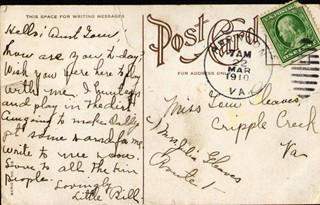 THIS SPACE FOR WRITING MESSAGES
Post Card
FOR ADDRESS ONLY
7 AM
22
MAR
1910
VA.
Hello! Aunt Lou.
how are you to-day?
Wish you were here to play
with me. I
and play in the dirt
going to make
some
write to me soon.
Love to all the kin
people.
Lovingly
Little Bill
Miss Lou Cleaves,
Cripple Creek
Va
Route 1